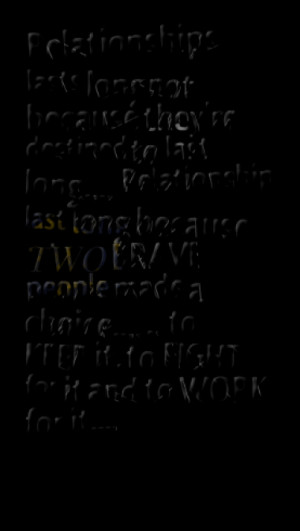 Relationships
lasts long not
because they're
destined to last
long.... Relationship
last long because
TWO BRAVE
people made a
choice...... to
KEEP it. to FIGHT
for it and to WORK
for it....